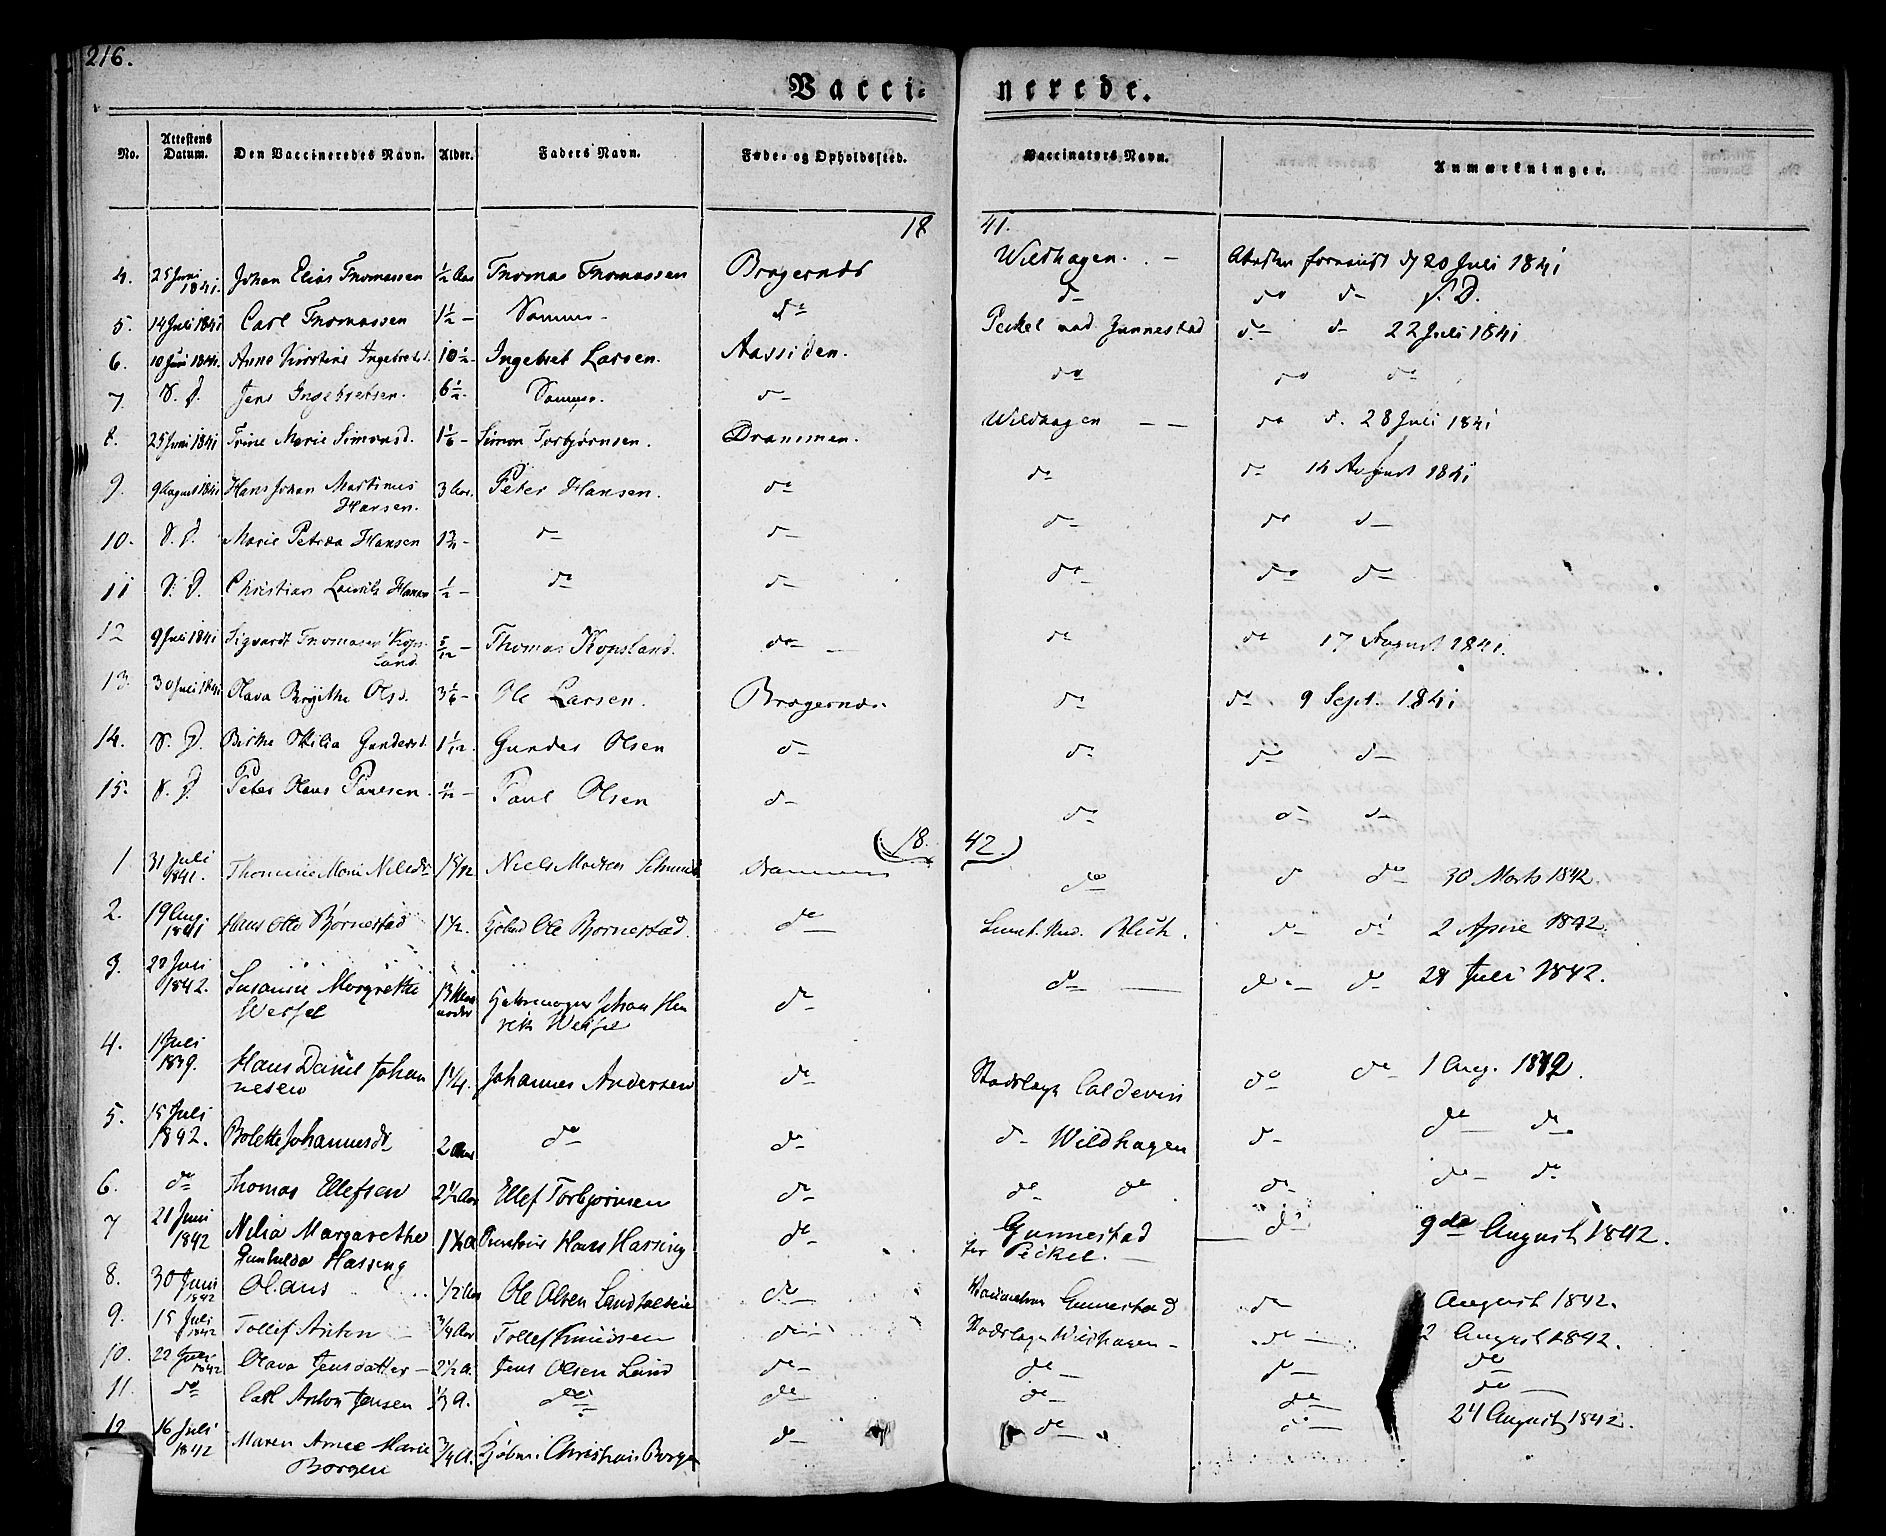 216.
Vacci- nerede.
No. Attestens Datum. Den Vaccineredes Navn. Alder. Faders Navn. Føde- og Opholdssted. Vaccinators Navn. Anmærkninger.
18 41.
4. 25 Juni 1841. Johan Elias Thomassen 1/2 Aar Thomas Thomassen Bragernæs Wildhagen. - Attesten foreviist d 20 Juli 1841
5. 14 Juli 1841 Carl Thomassen 1 1/2 - Samme - do do do d- S. D.
6. 10 Juni 1841. Anne Kirstine Ingebretsd. 10 1/2 - Ingebret Larsen. Aassiden. Peckel ved Gunnestad do d- 22 Juli 1841
7. S. D. Jens Ingebretsen. 6 1/2 - Samme. d- do do do
8. 25 Juni 1841 Trine Marie Simonsd. 1 1/6 - Simon Torbjørnsen. Drammen. Wildhagen - - do d. 28 Juli 1841
9. 9 August 1841 Hans Johan Martinus Hansen. 3 Aar. Peter Hansen. do do do 14 August 1841
10. S. D. Marie Petrea Hansen d- d- d- do d-
11 S. D. Christian Lauritz Hansen 1/2 - do d- do do d-
12 9 Juli 1841 Sigvardt Thomasen Kopsland 5/12 - Thomas Kopsland. do - do do 17 August 1841.
13. 30 Juli 1841 Olava Birgithe Olsd. 3 1/6 - Ole Larsen. Bragernæs do do 9 Sept. 1841
14. S. D. Birthe Otilia Gundersd. 1 1/12. Gunder Olsen d- do do d-
15. S. D. Peter Hans Paulsen. 11/12 - Paul Olsen d- do d- d-
(18. 42.)
1 31 Juli 1841. Thomine Marie Nilsdr Niels Morten Drammen do d do 30 Marts 1842.
2. 19 Aug. 1841 Hans Otto Bjørnestad 1 1/2. Ole Bjørnestad. do Blich. do do 2 1842.
3. 20 Juli 1842. Susanne Margrethe Wessel 13 Maaneder Johan Henrik Wessel do do do - do 28 Juli 1842.
4. 1 Juli 1839. Hans Daniel Johannesen 1 1/4. Johannes Andersen do Stadslæge Caldevin do do 1 Aug. 1842.
5. 15 Juli 1842. Bolette Johannesdr 2 Aar do do d- Wildhagen d- do do
6. do Thomas Ellefsen 2 1/2 Aar Ellef Torbjørnsen do do do do do do
7 21 Juni 1842 Nilia Margarethe Gunhilda Hassing 1 1/2 A Hans Hassing do Gunnestad for Peckel. - d 9de August 1842.
8. 30 Juni 1842 Olaus 1/2 Aar Ole Olsen do Gunnestad do August 1842.
9. 15 Juli 1842 Tollef Anton - 3/4 Aar Tollef Knudsen do Stadslæge Wildhagen - do - August 1842.
10. 22 Juli 1842 Olava Jensdatter - 2 1/2 A. Jens Olsen Lund do do do do
11. do Carl Anton Jensen A. do do do do do
12 16 Juli 1842 Maren Anne Marie Borgen 3/4 A. Christian Borgen do do do 24 August 1842.